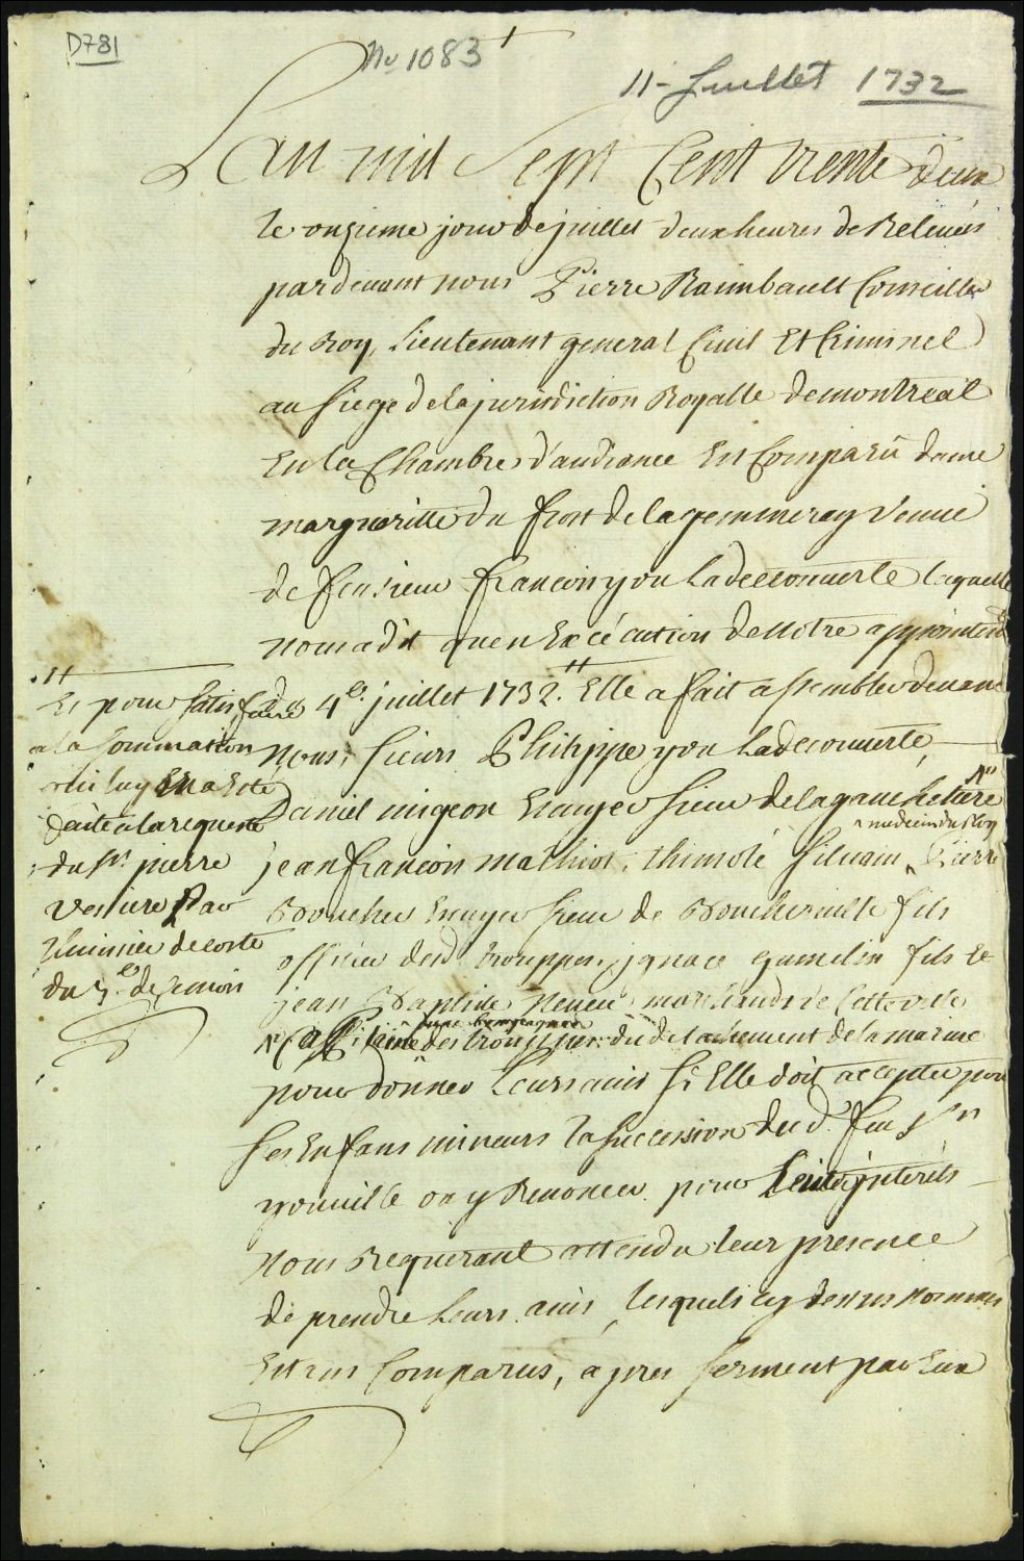 D781
No 1083
11 - Juillet 1732
L'an mil Sept Cent trente deux
le onzieme jour de juillet deux heures de Relevéé
pardevant nous Pierre Raimbault Conseiller
du Roy, Lieutenant general Civil Et Criminel
au siege de la jurisdiction Royalle de montreal
En la Chambre d'audiance Est Comparû dame
margueritte du frost de la gemmeray veuve
de feu sieur francois you Ladecouverte laquelle
nous a dit qu'en Execution de Notre appointemt
du 4e juillet 1732. Elle a fait assembler devant
Nous, sieurs Philippe you Ladecouverte,
Daniel migeon Ecuyer sieur de la gauchetiere
medecin du Roy
jean francois mathiot, thimoté silvain Pierre
Boucher Ecuyer sieur de Boucherville fils
officier desd. trouppes, jgnace gamelin fils Et
jean Baptiste Neveu marchands de Cette ville
une Compagnie
Capitaine des trouppes du detachement de la marine
pour donner Leurs avis si Elle doit accepter pour
ses Enfans mineurs la succession dud. feu sr
youville ou y Renoncer pour Leurs jnterêts
Nous Requerant attendu leur presence
de prendre Leurs avis, lesquels cy dessus nommés
Estans Comparus, apres serment par Eux
Et pour satisfaire
a la sommation
qui luy En a Esté
faite a la requeste
du sr. pierre
Verriere Par
l'huissier decoste
du 5e de Ce mois